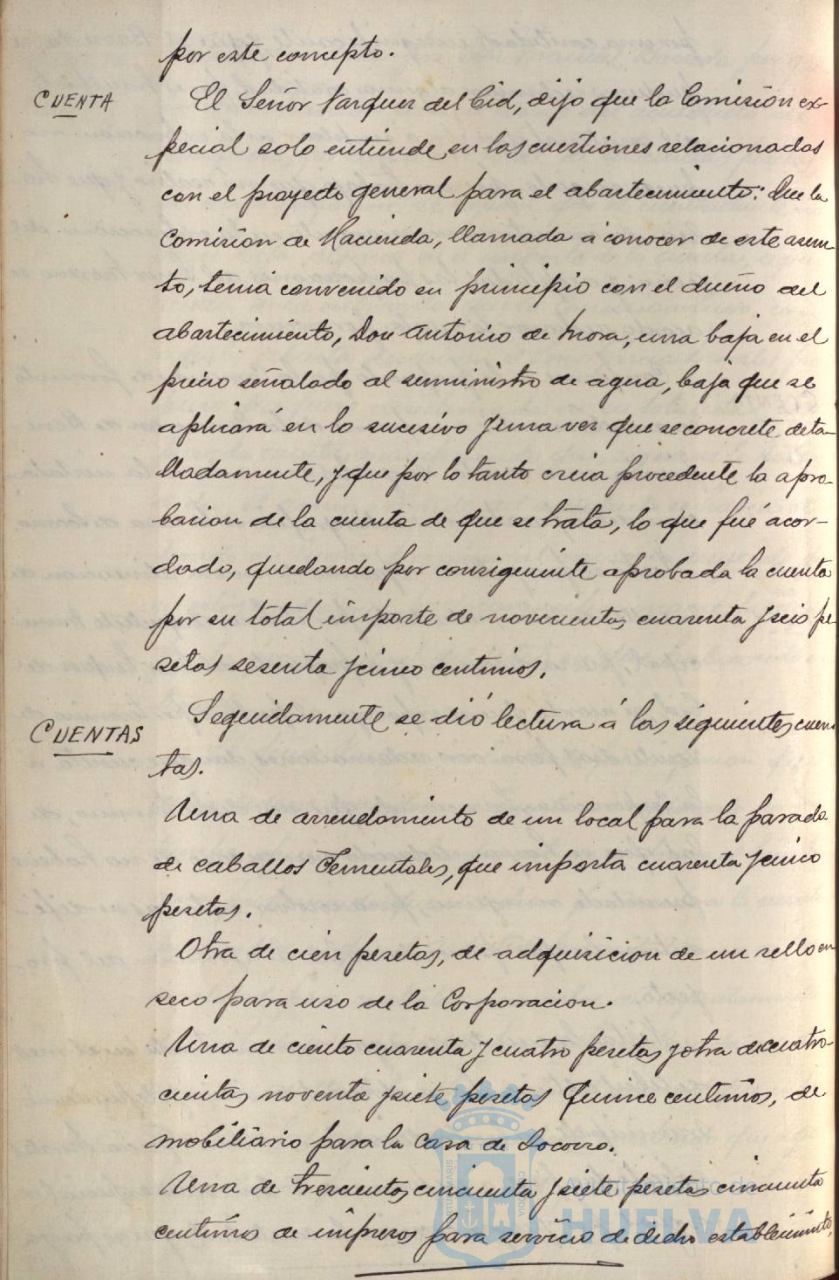 por este concepto.
CUENTA
El Señor Vazquez del Cid, dijo que la Comisión ex-
pecial solo entiende en las cuestiones relacionadas
con el proyecto general para el abastecimiento: Que la
Comisión de Hacienda, llamada á conocer de este asun-
to, tenia convenido en principio con el dueño del
abastecimiento, Don Antonio de Mora, una baja en el
precio señalado al suministro de agua, baja que se
aplicará en lo sucesivo y una vez que se concrete deta-
lladamente, y que por lo tanto creia procedente la apro-
bacion de la cuenta de que se trata, lo que fué acor-
dado, quedando por consiguiente aprobada la cuenta
por su total importe de novecientas cuarenta y seis pe-
setas sesenta y cinco centimos.
CUENTAS
Seguidamente se dió lectura á las siguientes cuen-
tas.
Una de arrendamiento de un local para la parada
de caballos Sementales, que importa cuarenta y cinco
pesetas.
Otra de cien pesetas, de adquisicion de un sello en
seco para uso de la Corporacion.
Una de ciento cuarenta y cuatro pesetas y otra de cuatro-
cientas noventa y siete pesetas quince centimos, de
mobiliario para la Casa de Socorro.
Una de trescientas cincuenta y siete pesetas cincuenta
centimos de impresos para servicio de dicho establecimiento,
HUELVA